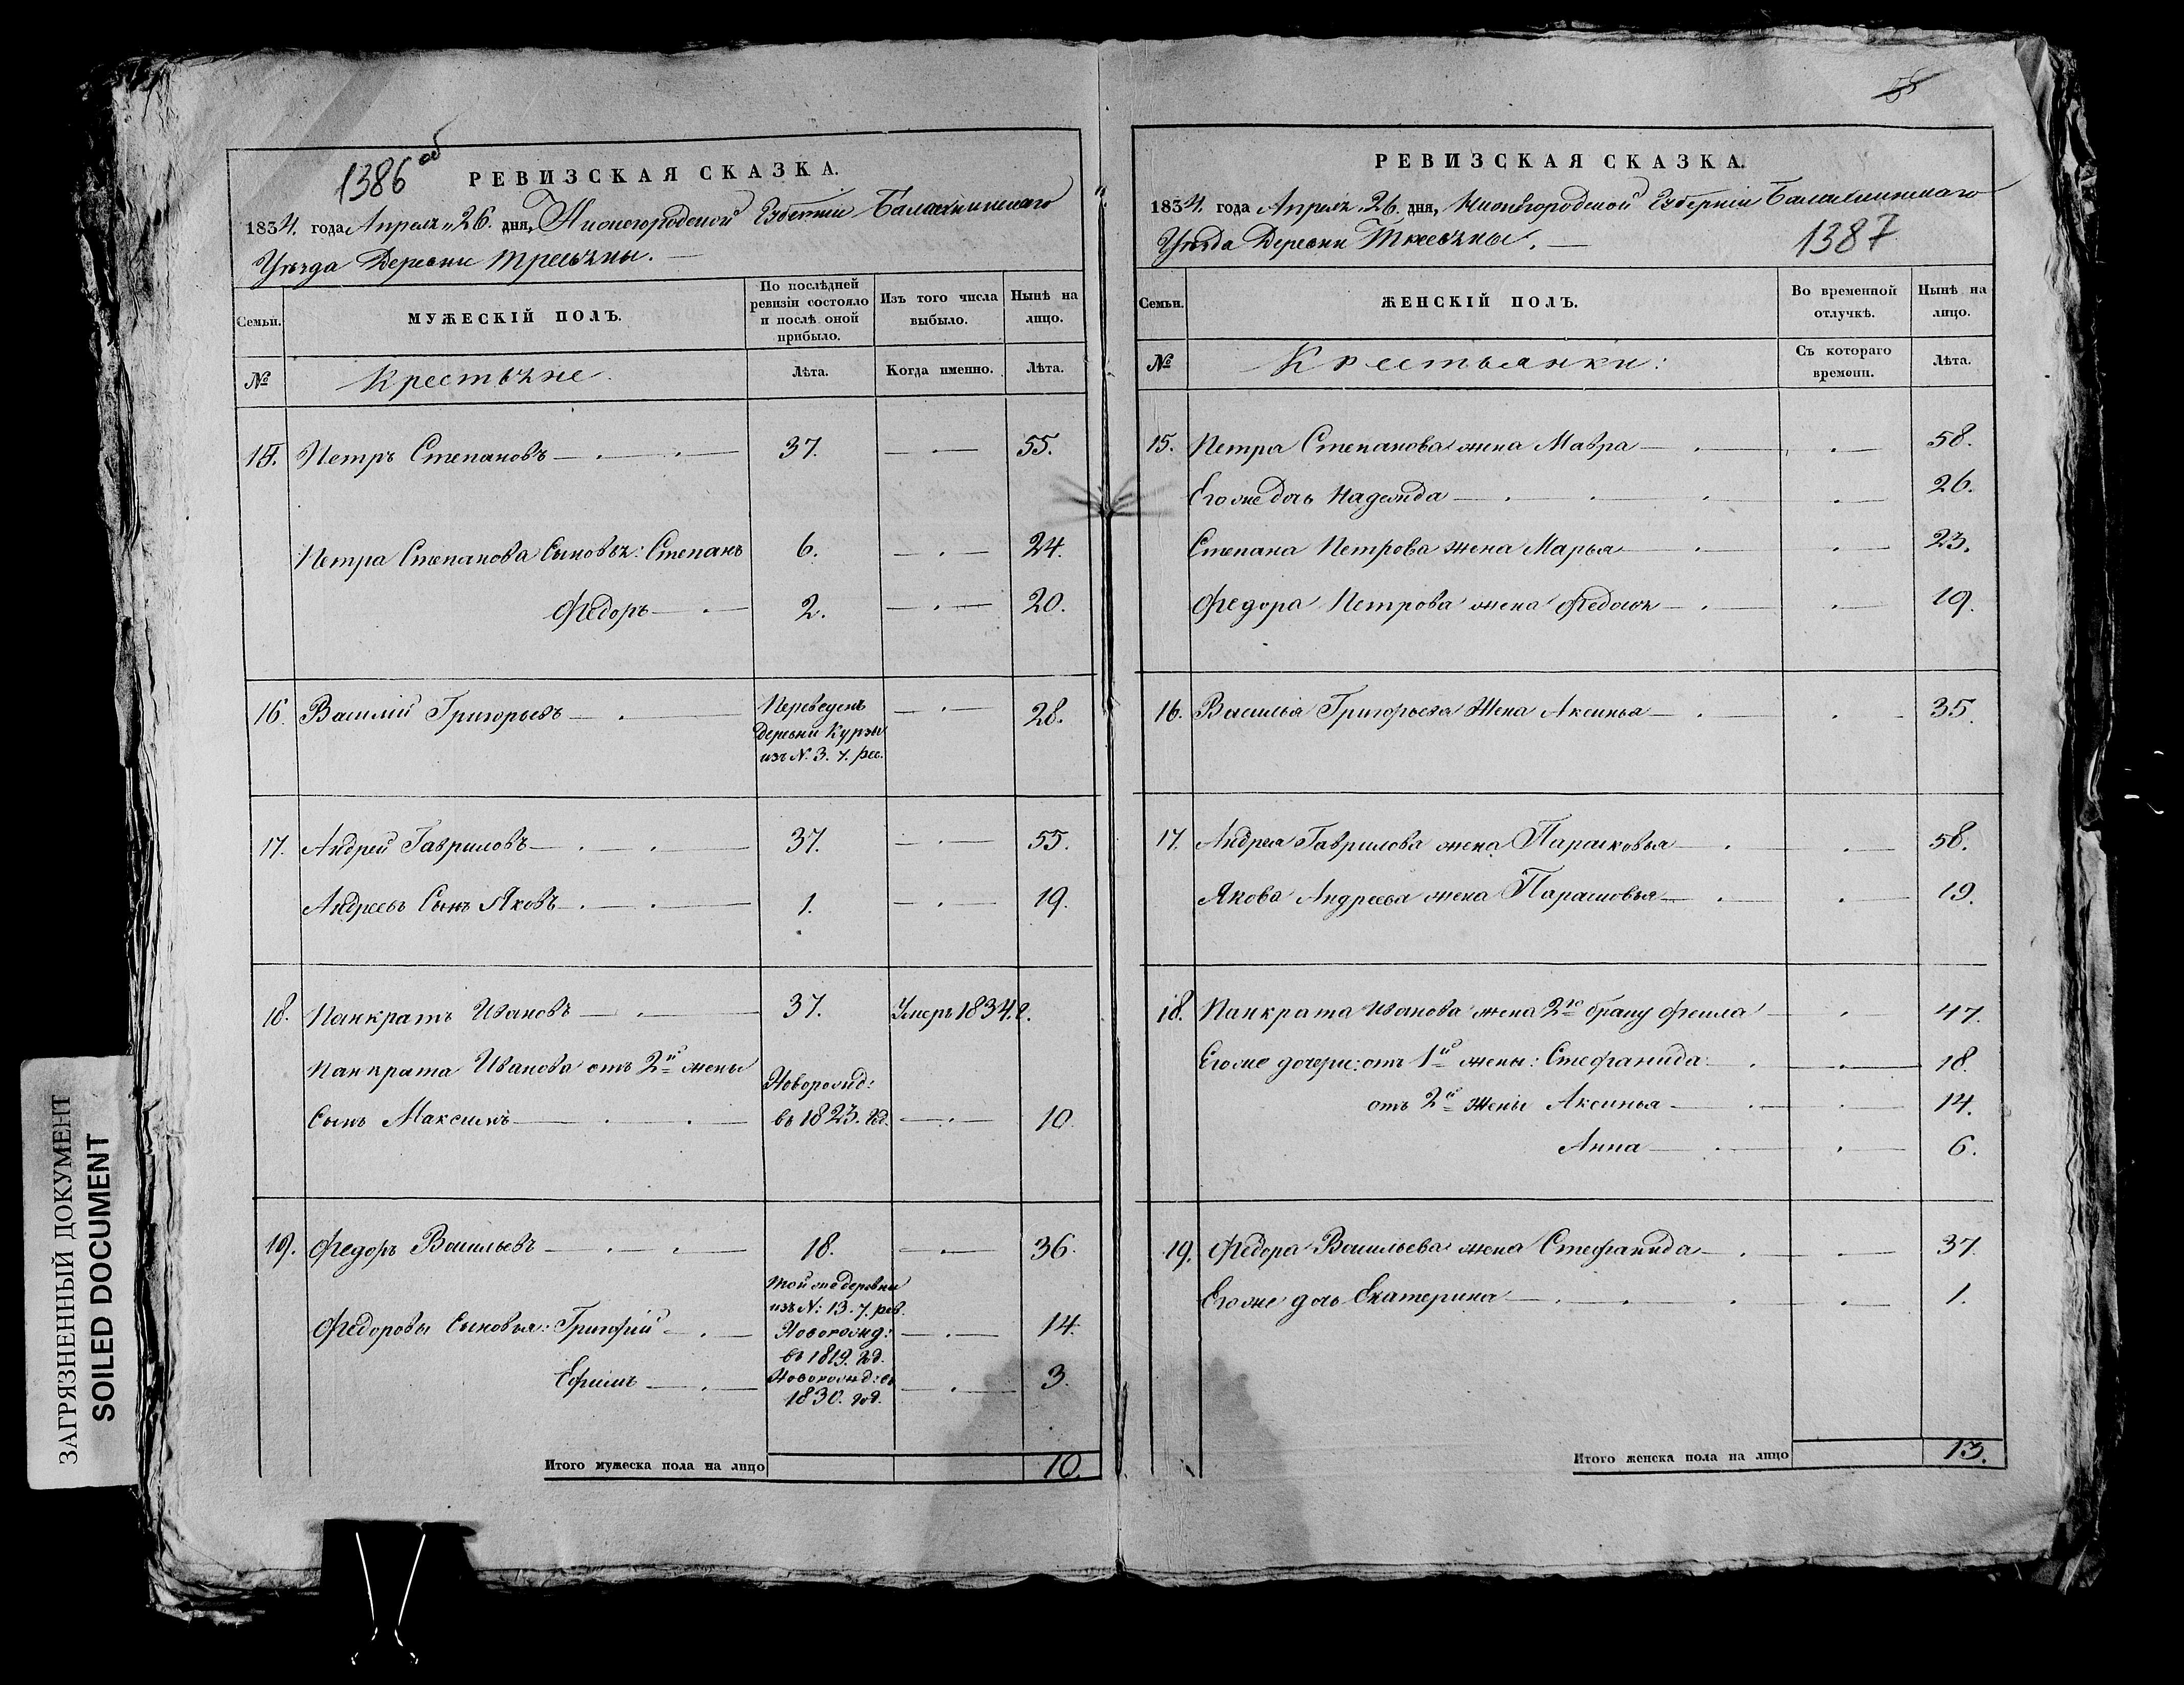 1386 об
РЕВИЗСКАЯ СКАЗКА.
1834. года Апреля 26. дня, Нижегородской Губернии Балахнинскаго
Уѣзда Деревни
Семьи. МУЖЕСКІЙ ПОЛЪ. По послѣдней ревизіи состояло и послѣ оной прибыло. Изъ того числа выбыло. Нынѣ на лицо.
№ Крестьяне. Лѣта. Когда именно. Лѣта.
15. Петръ Степановъ 37. 55.
Петра Степанова Сыновья: Степанъ 6. 24.
Федоръ 2. 20.
16. Василій Григорьевъ Переведенъ 28.
Деревни
изъ N. 3. 7. рев.
17. Андрей Гавриловъ 37. 55.
Андреевъ Сынъ Яковъ 1. 19.
18. Панкратъ Ивановъ 37. Умеръ 1834. г.
Панкрата Иванова отъ 2й жены Новорожд:
Сынъ Максимъ въ 1823. год. 10.
19. Федоръ Васильевъ 18. 36.
той же деревни
изъ N: 13. 7. рев.
Федоровы Сыновья: Григорій Новорожд: 14.
въ 1819. год.
Ефимъ Новорожд: въ 3.
1830. год.
Итого мужеска пола на лицо 10.
55
РЕВИЗСКАЯ СКАЗКА.
1834. года Апреля 26. дня, Нижегородской Губерніи Балахнинскаго
Уѣзда Деревни
1387
Семьи. ЖЕНСКІЙ ПОЛЪ. Во временной отлучкѣ. Нынѣ на лицо.
№ Крестьянки: Съ котораго времени. Лѣта.
15. Петра Степанова жена Мавра 58.
Его же дочь Надежда 26.
Степана Петрова жена Марья 23.
Федора Петрова жена Федосья 19.
16. Василья Григорьева Жена Аксинья 35.
17. Андрея Гаврилова жена Парасковья 58.
Якова Андреева жена Парасковья 19.
18. Панкрата Иванова жена 2го браку Фекла 47.
Его же дочери: отъ 1й жены: Стефанида 18.
отъ 2й Жены Аксинья 14.
Анна 6.
19. Федора Васильева жена Стефанида 37.
Его же дочь Екатерина 1.
Итого женска пола на лицо 13.
ЗАГРЯЗНЕННЫЙ ДОКУМЕНТ
SOILED DOCUMENT